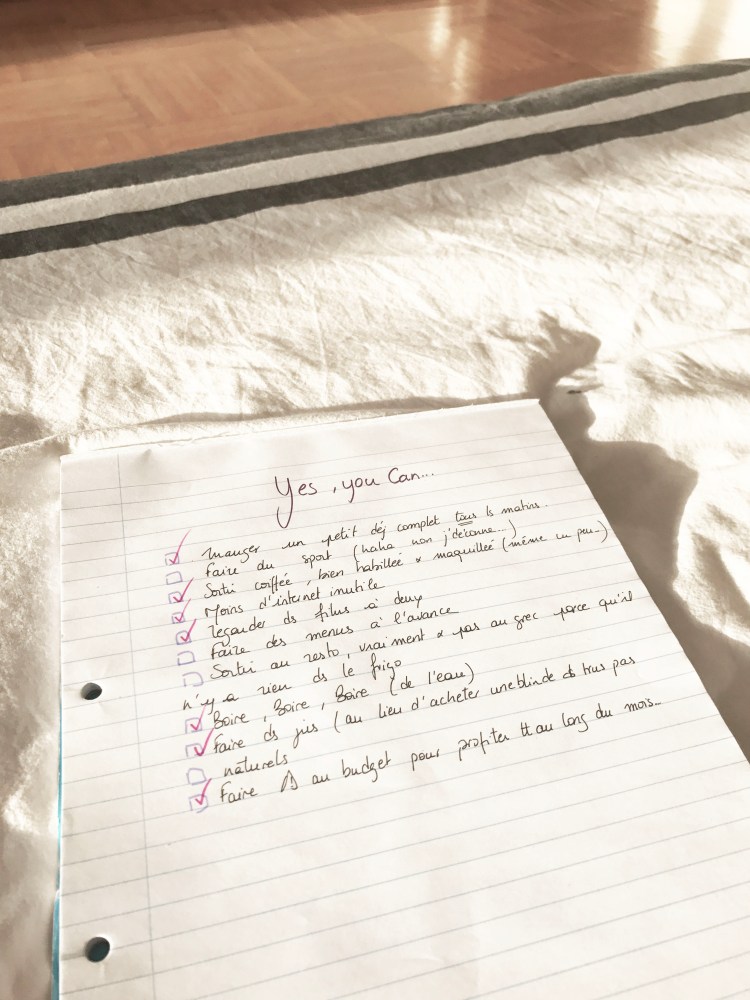 Yes, you Can...
Manger un petit déj complet tous ls matins..
Faire du sport (haha non j'déconne...)
Sortir coiffée, bien habillée & maquillée (même un peu...)
Moins d'internet inutile
Regarder ds films à deux
Faire des menus à l'avance
Sortir au resto, vraiment & pas au grec parce qu'il
n'y a rien ds le frigo
Boire, Boire, Boire (de l'eau)
Faire ds jus (au lieu d'acheter une blinde ds trus pas
naturels
Faire ⚠ au budget pour profiter tt au long du mois...